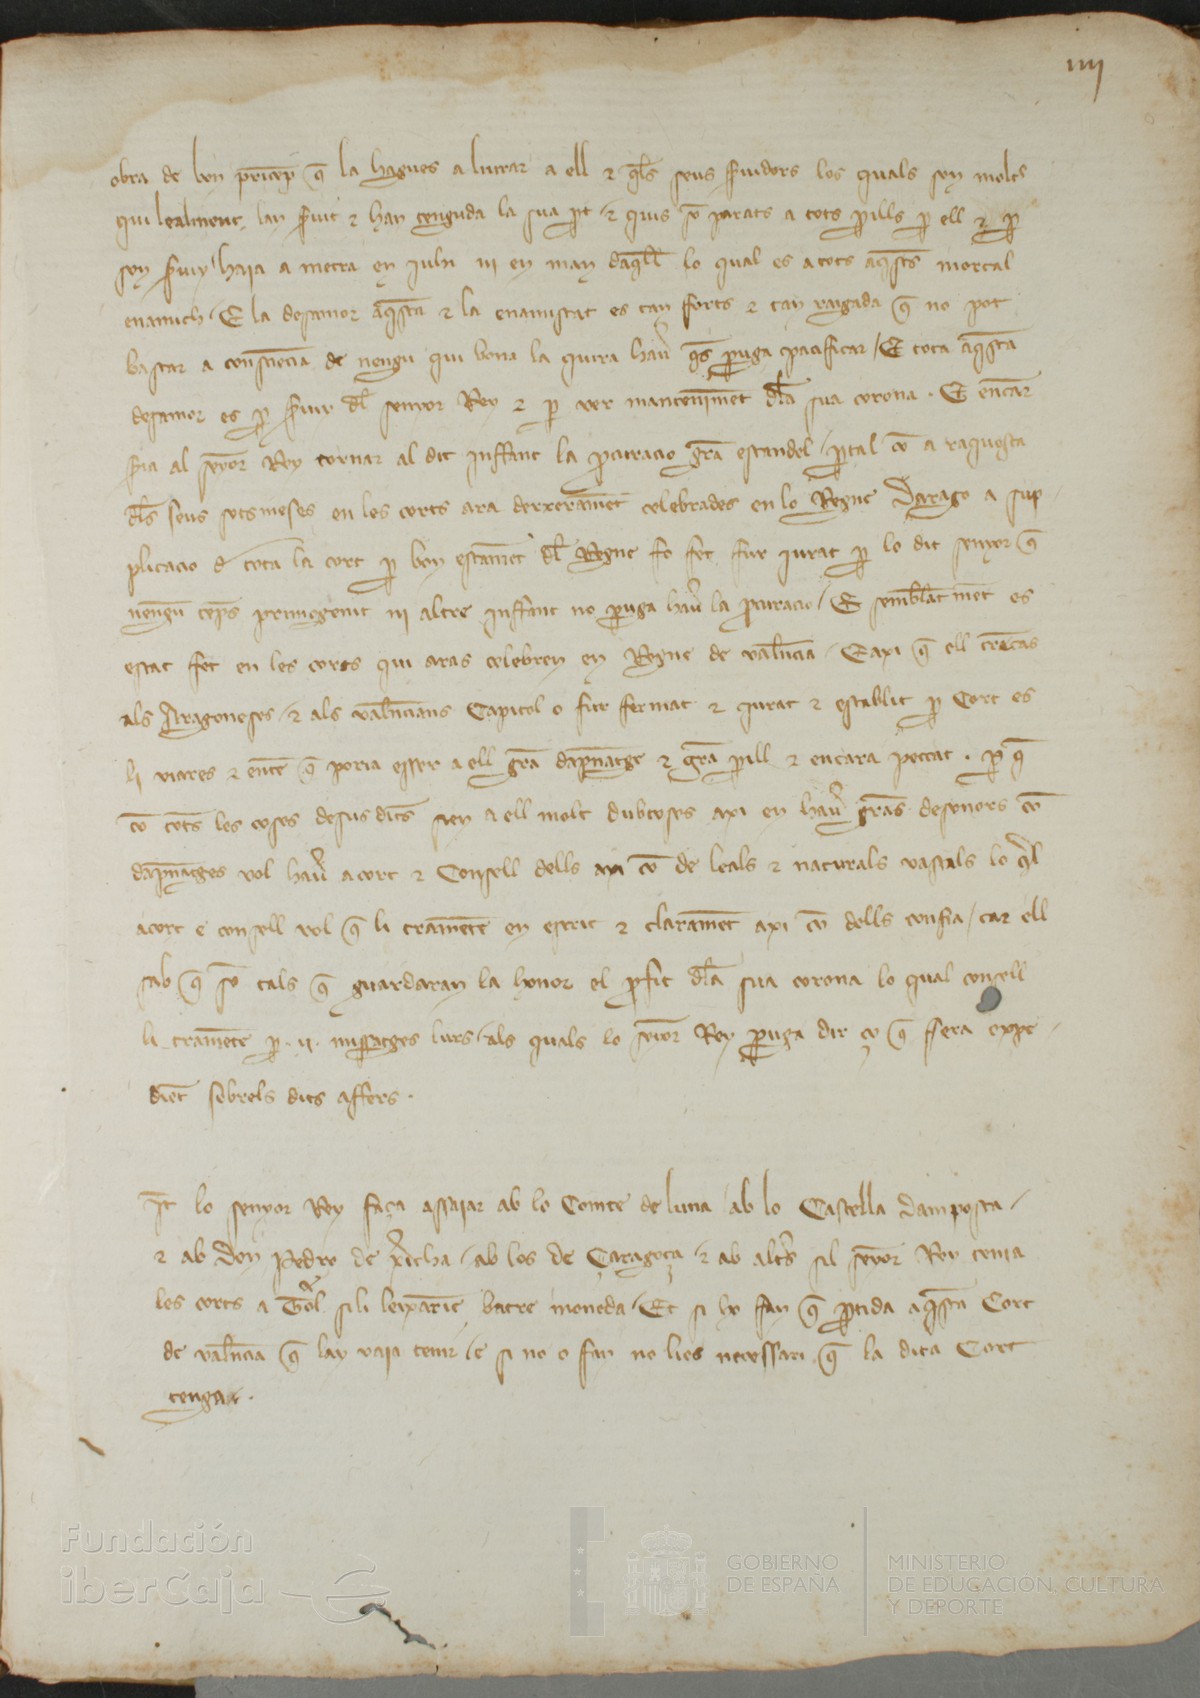 iiij
obra de bon princep q̃ la hagues a liurar a ell ⁊ q̃ls seus ſ̃uidors los quals son molts
qui lealment lan ſ̃uit ⁊ han tenguda la sua p̱t ⁊ quis sõ parats a tots p̱ills p̱ ell ⁊ p̱
son ſ̃uiy haia a metra en iuhi ni en man daq̃ll lo qual es a tots aq̃sts mortal
enamich / E la desamor aq̃sta ⁊ la enamistat es tan forts ⁊ tan raigada q̃ no pot
bastar a consciencia de nengu qui bona la quira hau̾ q̃s p̱uga pacificar / E tota aq̃sta
desamor es p̱ ſ̃uiy d̃l senyor Rey ⁊ p̱ ver manteniment d̃la sua corona . E encar
ſ̃ia al senyor Rey tornar al dit Inffant la p̱curacio grã escandel / p̱tal cõ a raquesta
d̃ls seus sotsmeses en les corts ara derreramẽt celebrades en lo Regne Darago a sup
plicacio d̃ tota la cort p̱ bon estamẽt d̃l Regne fo fet fur iurat p̱ lo dit senyor q̃
nengũ tẽps primogenit ni altre Inffant no p̱uga hau̾ la p̱curacio / E semblãt mẽt es
estat fet en les corts qui aras celebren en Regne de valẽncia / E axi q̃ ell trẽcas
als Aragoneses / ⁊ als valẽncians Capitol o fur fermat ⁊ iurat ⁊ establit p̱ Cort es
li viares ⁊ entẽ q̃ poria esser a ell grã dapnatge ⁊ grã p̱ill ⁊ encara peccat . p̱ q̃
cõ totes les coses desusdites sien a ell molt dubtoses axi en hau̾ grãs desonors cõ
dapnatges vol hau̾ acort ⁊ Consell dells axi cõ de leals ⁊ naturals vassals lo q̃l
acort e consell vol q̃ li trametẽ en escrit ⁊ claramẽt axi cõ dells confia / car ell
sab q̃ sõ tals q̃ guardaran la honor el p̱fit d̃la sua corona lo qual consell
li trametẽ p̱ .ii. missatges lurs / als quals lo senyor Rey p̱uga dir ço q̃ ssera expe
diẽt sobrels dits affers .
Itẽ lo senyor Rey faça assaiar ab lo Comte de luna / ab lo Castella damposta /
⁊ ab Don Pedro de xericha / ab los de Çaragoça / ⁊ ab altres sil senyor Rey tenia
les corts a Terol sili leixariẽ batre moneda / Et si ho fan q̃ p̱tida aq̃sta Cort
de valẽncia q̃ lay vaia tenir / e si no o fan no lies necessari q̃ la dita Cort
tengar .
Fundación
iberCaja
GOBIERNO
DE ESPAÑA
MINISTERIO
DE EDUCACIÓN, CULTURA
Y DEPORTE